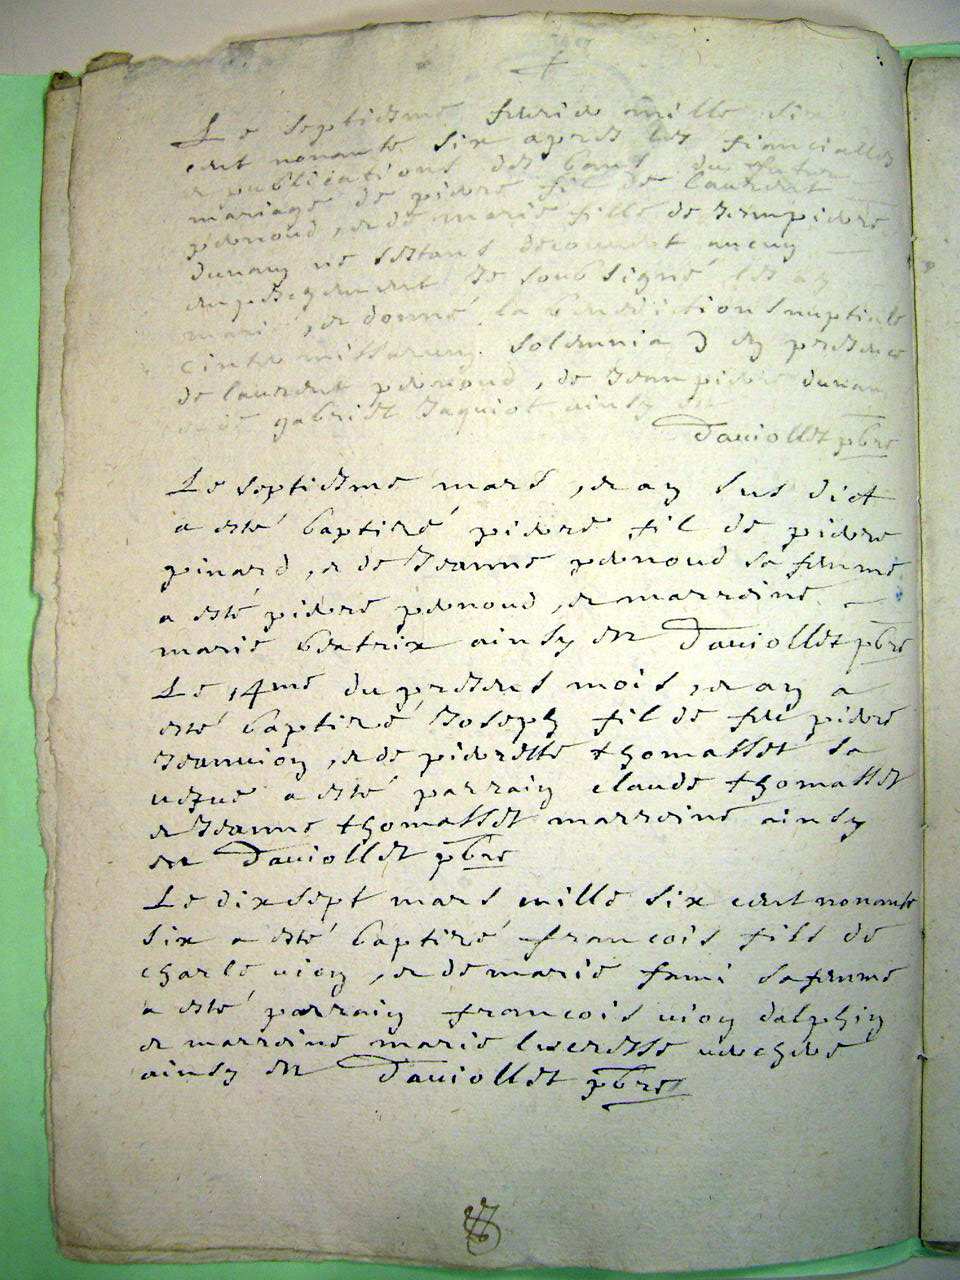 Le septiesme feurie mille six
cent nonante six apres les fiancialles
et publications des bans du futur
mariage de pierre fil de laurent
pernoud, et de marie fille de Jeanpierre
dunan ne sestans decouuert aucun
empechement Je soubsigné les ay
marié, et donné la benediction nuptiale
missarum solemnia en presence
de laurent pernoud, de Jeanpierre dunan
et de gabriel Jaquiot ainsy est
Dauiollet pbre
Le septiesme mars, et an sus dict
a esté baptizé pierre fil de pierre
pinard, et de Jeanne pernoud sa femme
a esté pierre pernoud, et marreine
marie beatrix ainsy est Dauiollet pbre
Le 14me du presens mois, et an a
esté baptizé Joseph fil de feu pierre
Jeanuion, et de pierrette thomasset sa
uefue a esté parrain claude thomasset
et Jeanne thomasset marreine ainsy
est Dauiollet pbre
Le dixsept mars mille six cent nonante
six a esté baptizé francois fils de
charle uion, et de marie sa femme
a esté parrain francois uion dalphin
et marreine marie uerchere
ainsy est Dauiollet pbre